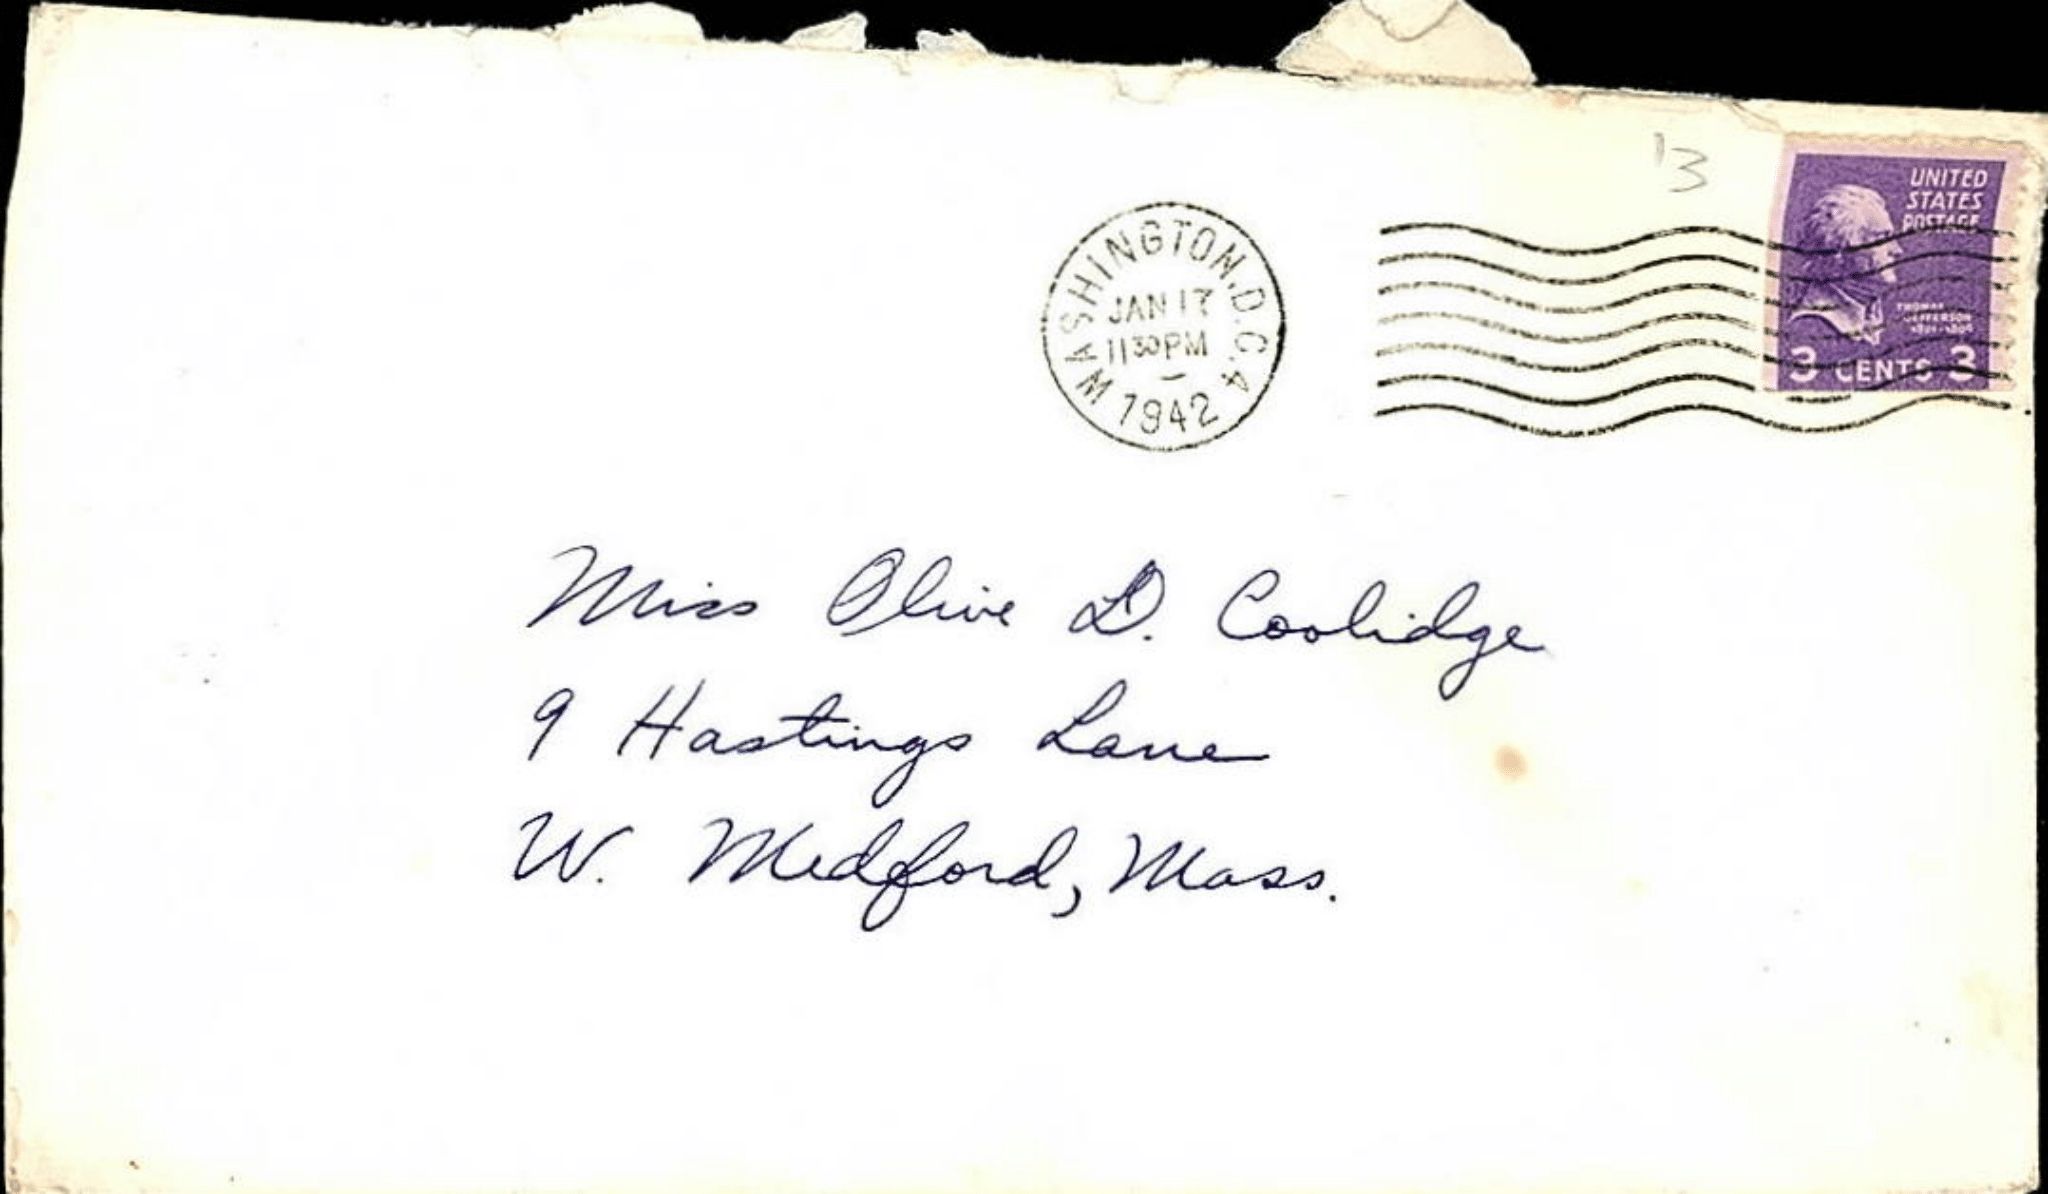 13
UNITED
STATES
POSTAGE
THOMAS
JEFFERSON
1801-1809
3 CENTS 3
WASHINGTON, D.C. 4
JAN 17
11 30 PM
1942
Miss Olive D. Coolidge
9 Hastings Lane
W. Medford, Mass.